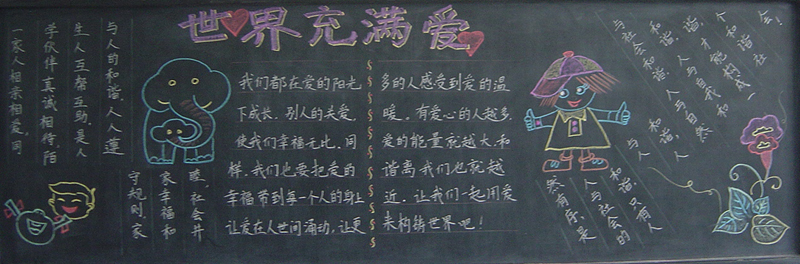 世界充满爱
一家人相亲相爱，同
学伙伴真诚相待，陌
生人互帮互助，是人
与人的和谐。人人遵
守规则，家
家幸福和
睦，社会井
然有序，是
人与社会的
和谐。只有人
与人和谐，人
与社会和谐，人与自然
和谐，人与自我和
谐，才能构成一
个和谐社
会！
我们都在爱的阳光
下成长，别人的关爱，
使我们幸福无比，同
样，我们也要把爱的
幸福带到每一个人的身上
让爱在人世间涌动，让更
多的人感受到爱的温
暖，有爱心的人越多，
爱的能量就越大，和
谐离我们也就越
近，让我们一起用爱
来构铸世界吧！